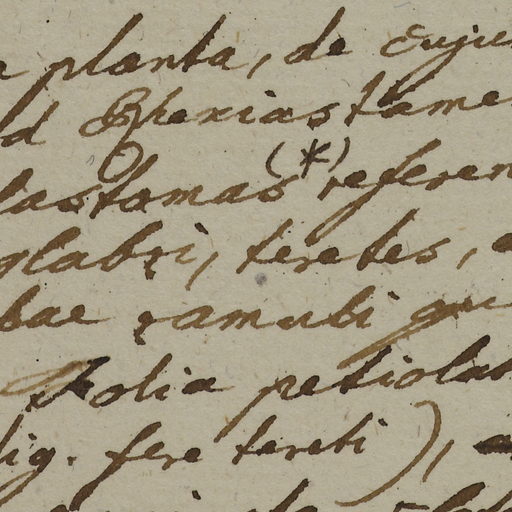 planta, de cuju
d Rhexias tamen
lastomas (*) referen
glabri, teretes,
bae ramuli
Folia petiolat
lig. fere tereti),